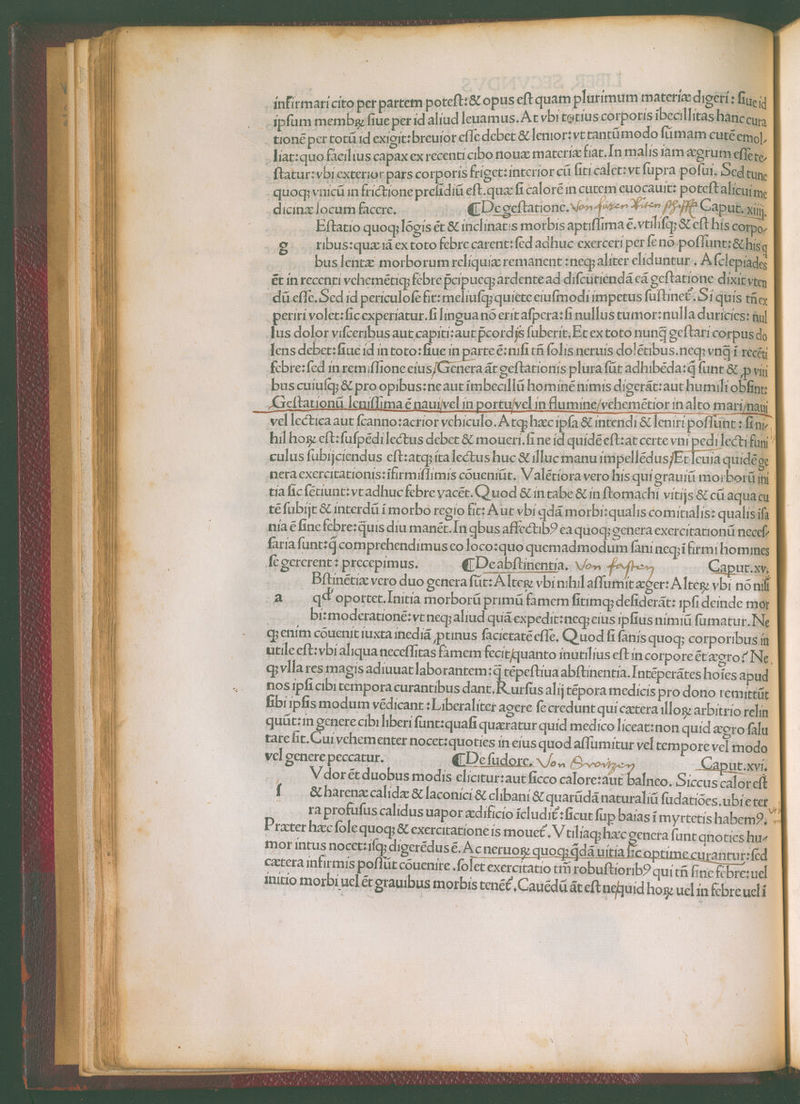 infirmari cito per partem potest:& opus est quam plurimum materiæ digeri: siue id
ipsum membꝝ siue per id aliud leuamus. At vbi totius corporis ībecillitas hanc cura
tionē per totū id exigit:breuior esse debet & lenior:vt tantūmodo sūmam cutē emol-
liat:quo facilius capax ex recenti cibo nouæ materiæ fiat. In malis iam ægrum esse te-
statur:vbi exterior pars corporis friget:interior cū siti calet:vt supra posui. Sed tunc
quoqʒ vnicū in frictione presidiū est.quæ si calorē in cutem euocauit: potest alicui me
dicinæ locum facere. ¶ De gestatione. Von Caput. xiiij.
Estatio quoqʒ lōgis ēt & inclinatis morbis aptissima ē.vtilisqʒ & est his corpo-
g ribus:quæ iā ex toto febre carent:sed adhuc exerceri per se nō possunt:& his q
bus lentæ morborum reliquiæ remanent:neqʒ aliter eliduntur. Asclepiades
ēt in recenti vehemētiqʒ febre p̄cipueqʒ ardente ad discutiendā eā gestatione dixit vten
dū esse. Sed id periculose fit:meliusqʒ quiete eiusmodi impetus sustinet᷑. Si quis tn̄ ex
periri volet:sic experiatur.si lingua nō erit aspera:si nullus tumor:nulla duricies: nul
lus dolor visceribus aut capiti:aut p̄cordijs suberit. Et ex toto nunq̄ gestari corpus do
lens debet:siue id in toto:siue in parte ē:nisi tn̄ solis neruis dolētibus.neqʒ vnq̄ ī recēti
febre:sed in remissione eius/Genera āt gestationis plura sūt adhibēda:q̄ sunt & ꝓ viri
bus cuiusqʒ & pro opibus:ne aut imbecillū hominē nimis digerāt:aut humili obsint:
Gestationū lenissima ē naui/vel in portu/vel in flumine/vehemētior in alto mari/naui
vel lectica aut scanno:acrior vehiculo. Atqʒ hæc ipsa & intendi & leniri possunt: si ni-
hil hoꝝ est:suspēdi lectus debet & moueri.si ne id quidē est:at certe vni pedi lecti funi
culus subijciendus est:atqʒ ita lectus huc & illuc manu impellēdus/Et leuia quidē ge
nera exercitationis:īfirmissimis cōueniūt. Valētiora vero his qui grauiū morborū ini
tia sic sētiunt:vt adhuc febre vacēt. Quod & in tabe & in stomachi vitijs & cū aqua cu
tē subijt & interdū ī morbo regio fit: Aut vbi qdā morbi:qualis comitialis: qualis īsa
nia ē sine febre:quis diu manēt. In qbus affectib⁹ ea quoqʒ genera exercitationū necess-
saria sunt:q̄ comprehendimus eo loco:quo quemadmodum sani neqʒ ī firmi homines
se gererent: precepimus. ¶ De abstinentia. Von fasten Caput.xv.
Bstinētiæ vero duo genera sūt: Alteꝝ vbi nihil assumit æger: Alteꝝ vbi nō nisi
a qd' oportet. Initia morborū primū famem sitimqʒ desiderāt: ipsi deinde mor
bi:moderationē:vt neqʒ aliud quā expedit:neqʒ eius ipsius nimiū sumatur. Ne
qʒ enim cōuenit iuxta inediā ꝓtinus facietatē esse. Quod si sanis quoqʒ corporibus in
utile est:vbi aliqua necessitas famem fecit/quanto inutilius est in corpore ēt ægro? Ne
qʒ vlla res magis adiuuat laborantem:q̄ tēpestiua abstinentia. Intēperātes hoīes apud
nos ipsi cibi tempora curantibus dant. Rursus alij tēpora medicis pro dono remittūt
sibi ipsis modum vēdicant: Liberaliter agere se credunt qui cætera illoꝝ arbitrio relin
quūt:in genere cibi liberi sunt:quasi quæratur quid medico liceat:non quid ægro salu
tare sit. Cui vehementer nocet:quoties in eius quod assumitur vel tempore vel modo
vel genere peccatur. ¶ De sudore. Von Caput.xvi.
Vdor ēt duobus modis elicitur:aut sicco calore:aut balneo. Siccus calor est
ſ & harenæ calidæ & laconici & clibani & quarūdā naturaliū sudatiōes.ubi e ter
ra profusus calidus uapor ædificio īcludit᷑:sicut sup baias ī myrtetis habem⁹.
Præter hæc sole quoqʒ & exercitatione is mouet᷑. Vtiliaqʒ hæc genera sunt qnoties hu-
mor intus nocet:isqʒ digerēdus ē. Ac neruoꝝ quoqʒ qdā uitia sic optime curantur:sed
cætera infirmis possūt cōuenire.solet exercitatio tm̄ robustiorib⁹ qui tn̄ sine febre:uel
initio morbi uel ēt grauibus morbis tenēt᷑. Cauēdū āt est nequid hoꝝ uel in febre uel ī